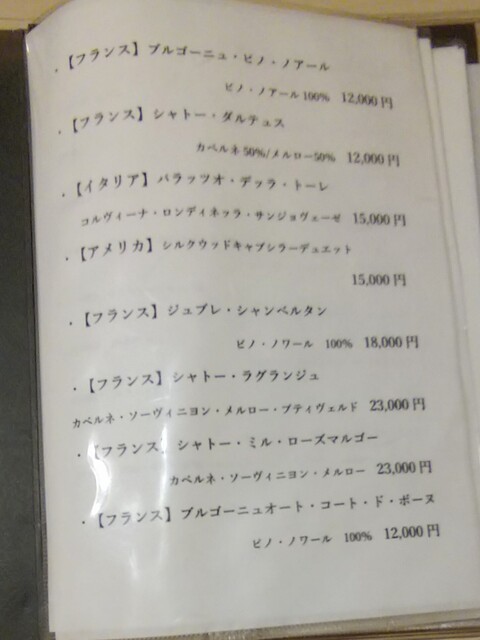 ・【フランス】ブルゴーニュ・ピノ・ノアール
ピノ・ノアール 100% 12,000円
・【フランス】シャトー・ダルテュス
カベルネ 50%/メルロー50% 12,000円
・【イタリア】パラッツオ・デッラ・トーレ
コルヴィーナ・ロンディネッラ・サンジョヴェーゼ 15,000円
・【アメリカ】シルクウッドキャプシラーデュエット
15,000円
・【フランス】ジュブレ・シャンベルタン
ピノ・ノワール 100% 18,000円
・【フランス】シャトー・ラグランジュ
カベルネ・ソーヴィニヨン・メルロー・プティヴェルド 23,000円
・【フランス】シャトー・ミル・ローズマルゴー
カベルネ・ソーヴィニヨン・メルロー 23,000円
・【フランス】ブルゴーニュオート・コート・ド・ボーヌ
ピノ・ノワール 100% 12,000円